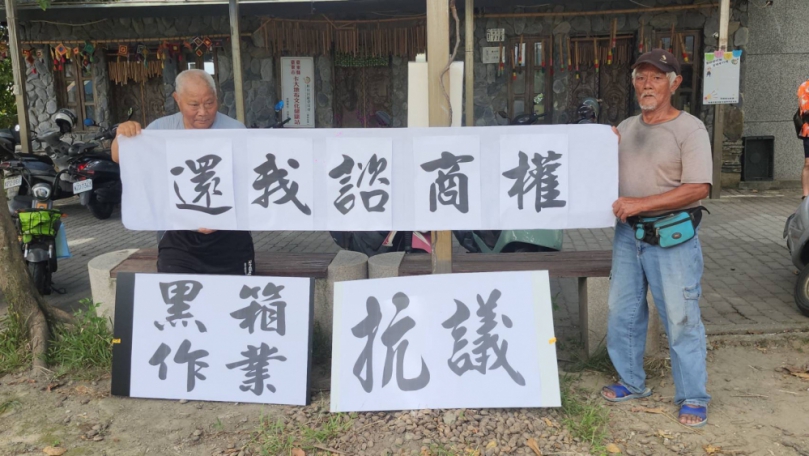 還我諮商權
黑箱
作業
抗議